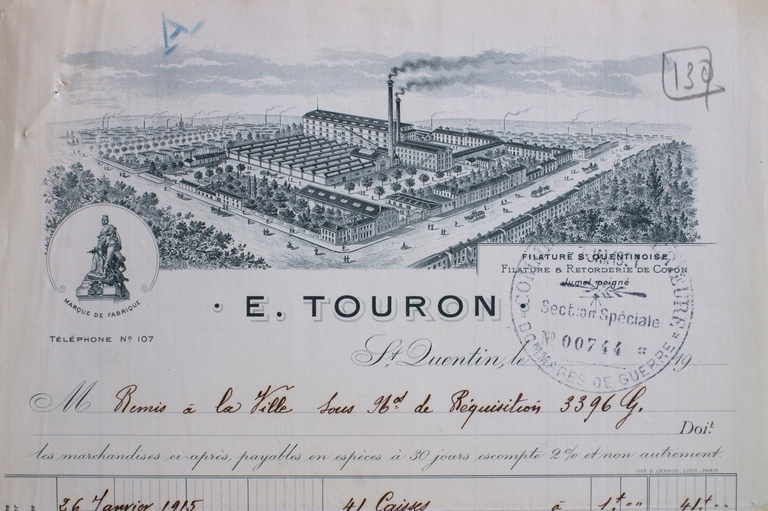 130
FILATURE St QUENTINOISE
FILATURE & RETORDERIE DE COTON
Jumel peigné
MARQUE DE FABRIQUE
· E. TOURON ·
Section Spéciale
Nº 00744
DOMMAGES DE GUERRE
TÉLÉPHONE Nº 107
St Quentin, le 19
M Remis à la Ville sous de Réquisition 3396 G.
Doit
les marchandises ci-après, payables en espèces à 30 jours escompte 2% et non autrement.
IMP. B. ARNAUD, LYON-PARIS
26 Janvier 1915 41 Caisses à 1.t "" 41.t ""